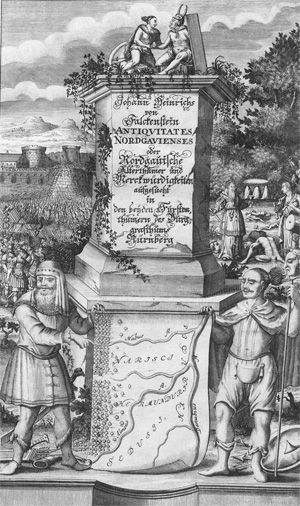 Johann Heinrichs
von
Falckenstein
ANTIQVITATES
NORDGAVIENSES
oder
Nordgauische
Alterthümer und
Merckwürdigkeiten
aufgesucht
in
den beyden Fürsten,
thümern des Burg,
grafthums
Nürnberg
NARISCI
SEDUSII